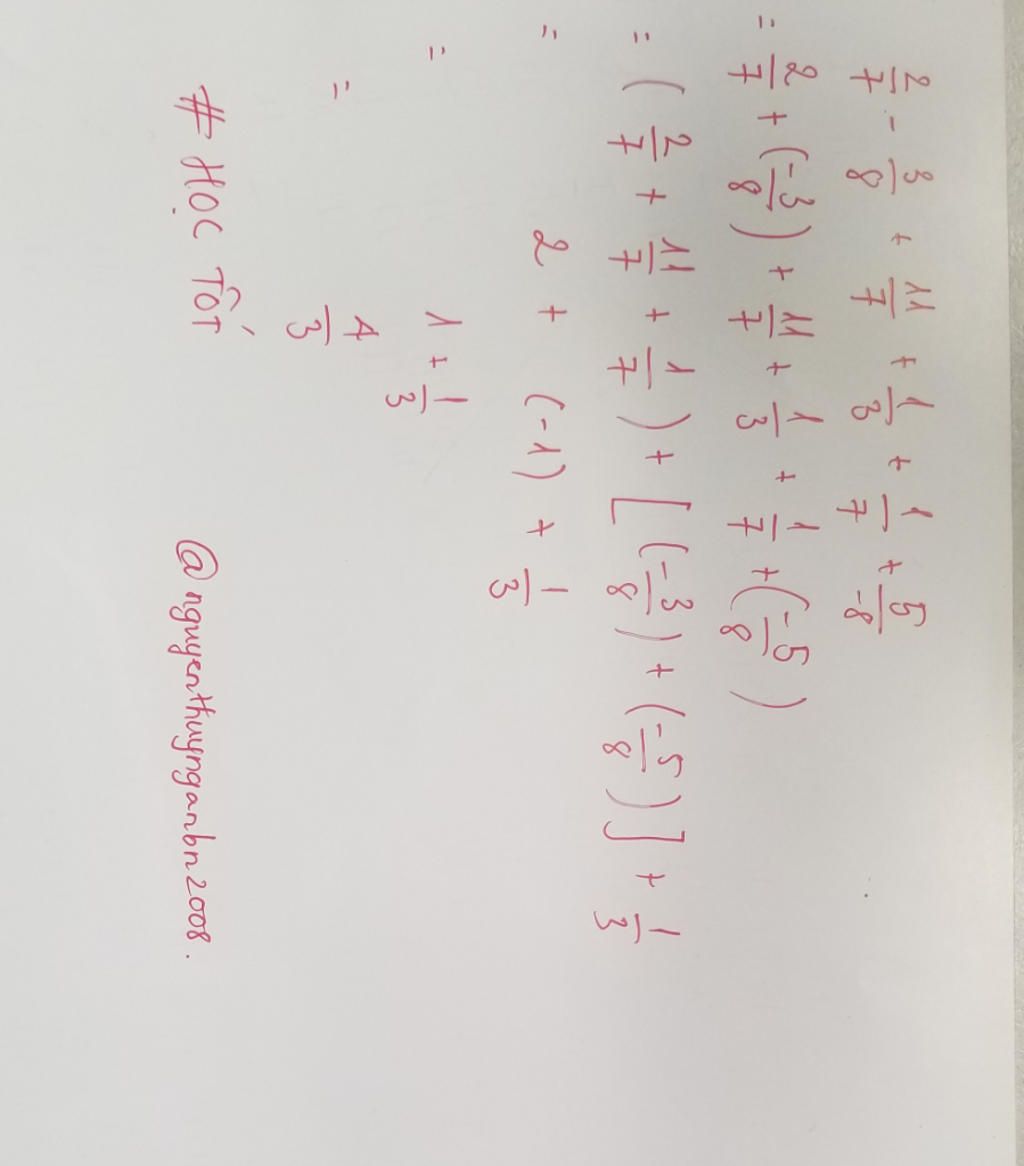 2/7 - 3/8 + 11/7 + 1/3 + 1/7 + 5/-8
= 2/7 + (-3/8) + 11/7 + 1/3 + 1/7 + (-5/8)
= (2/7 + 11/7 + 1/7) + [(-3/8) + (-5/8)] + 1/3
= 2 + (-1) + 1/3
= 1 + 1/3
= 4/3
# HỌC TỐT @nguyenthuynganbn2008.